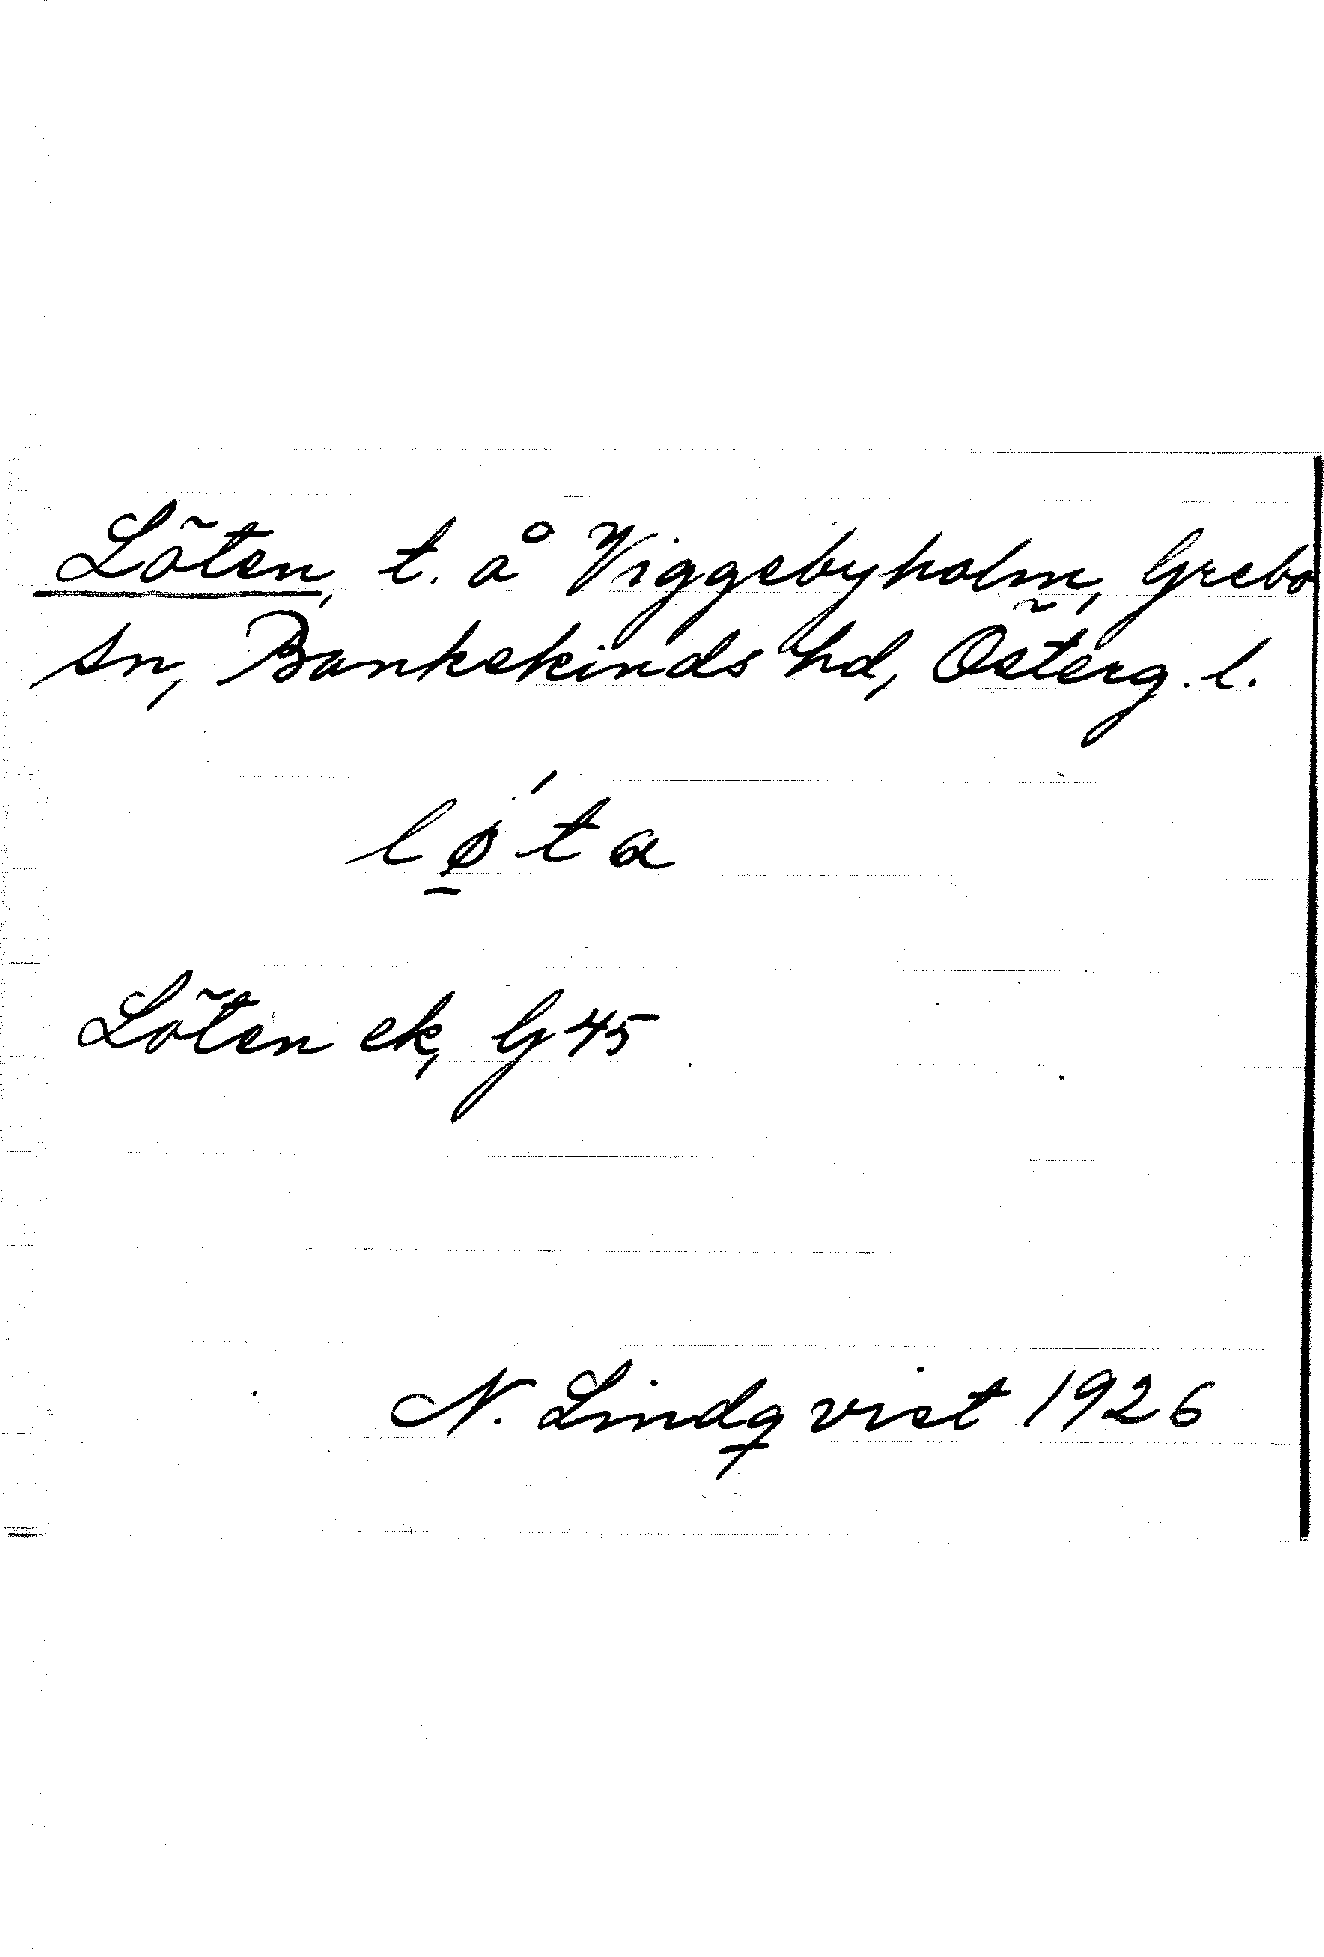 Löten, t. å Viggebyholm, Grebo
sn, Bankekinds hd, Österg. l.
lǿ̱ta
Löten ek, G 45
N. Lindqvist 1926